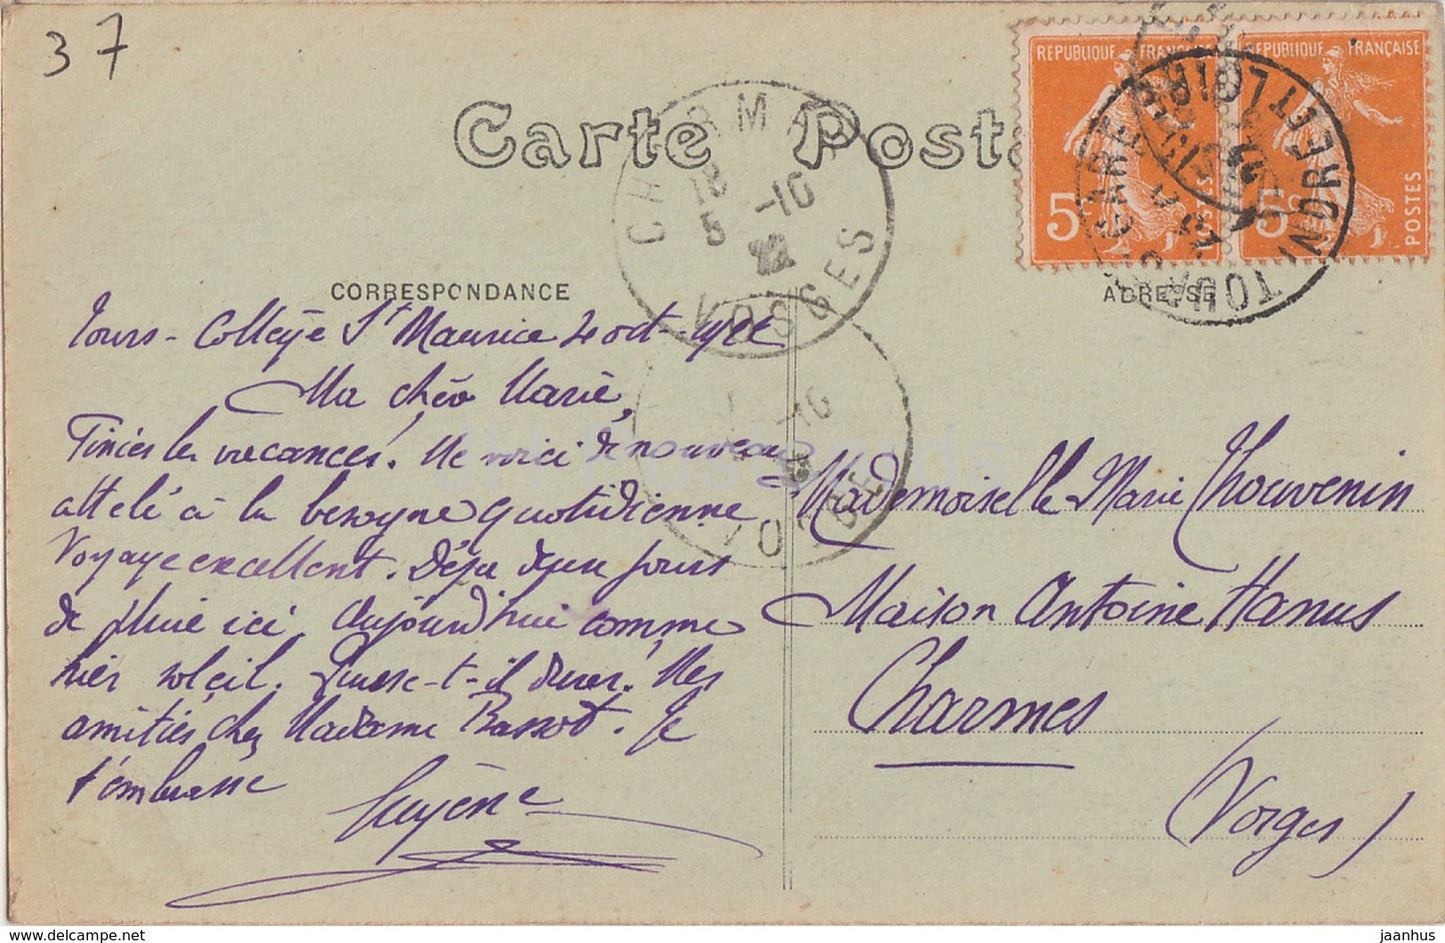 37
Carte Posta
REPUBLIQUE FRANÇAISE
5c
POSTES
REPUBLIQUE FRANÇAISE
5c
POSTES
GARE TOURS INDRE ET LOIRE
CHARMES
18
5 -10
22
VOSGES
-10
VOSGES
CORRESPONDANCE
ADRESSE
Tours - Collège St Maurice 4 oct - 1922
Ma chère Marie,
Finies les vacances. Me voici de nouveau
attelé à la besogne quotidienne
Voyage excellent. Déjà deux jours
de pluie ici aujourd'hui comme
hier soleil. Puisse-t-il durer. Mes
amitiés chez Madame Bassot. Je
t'embrasse
Eugène
Mademoiselle Marie Thouvenin
Maison Antoine Hanus
Charmes
(Vosges)
JH Postcards
delcampe.net
jaanhus